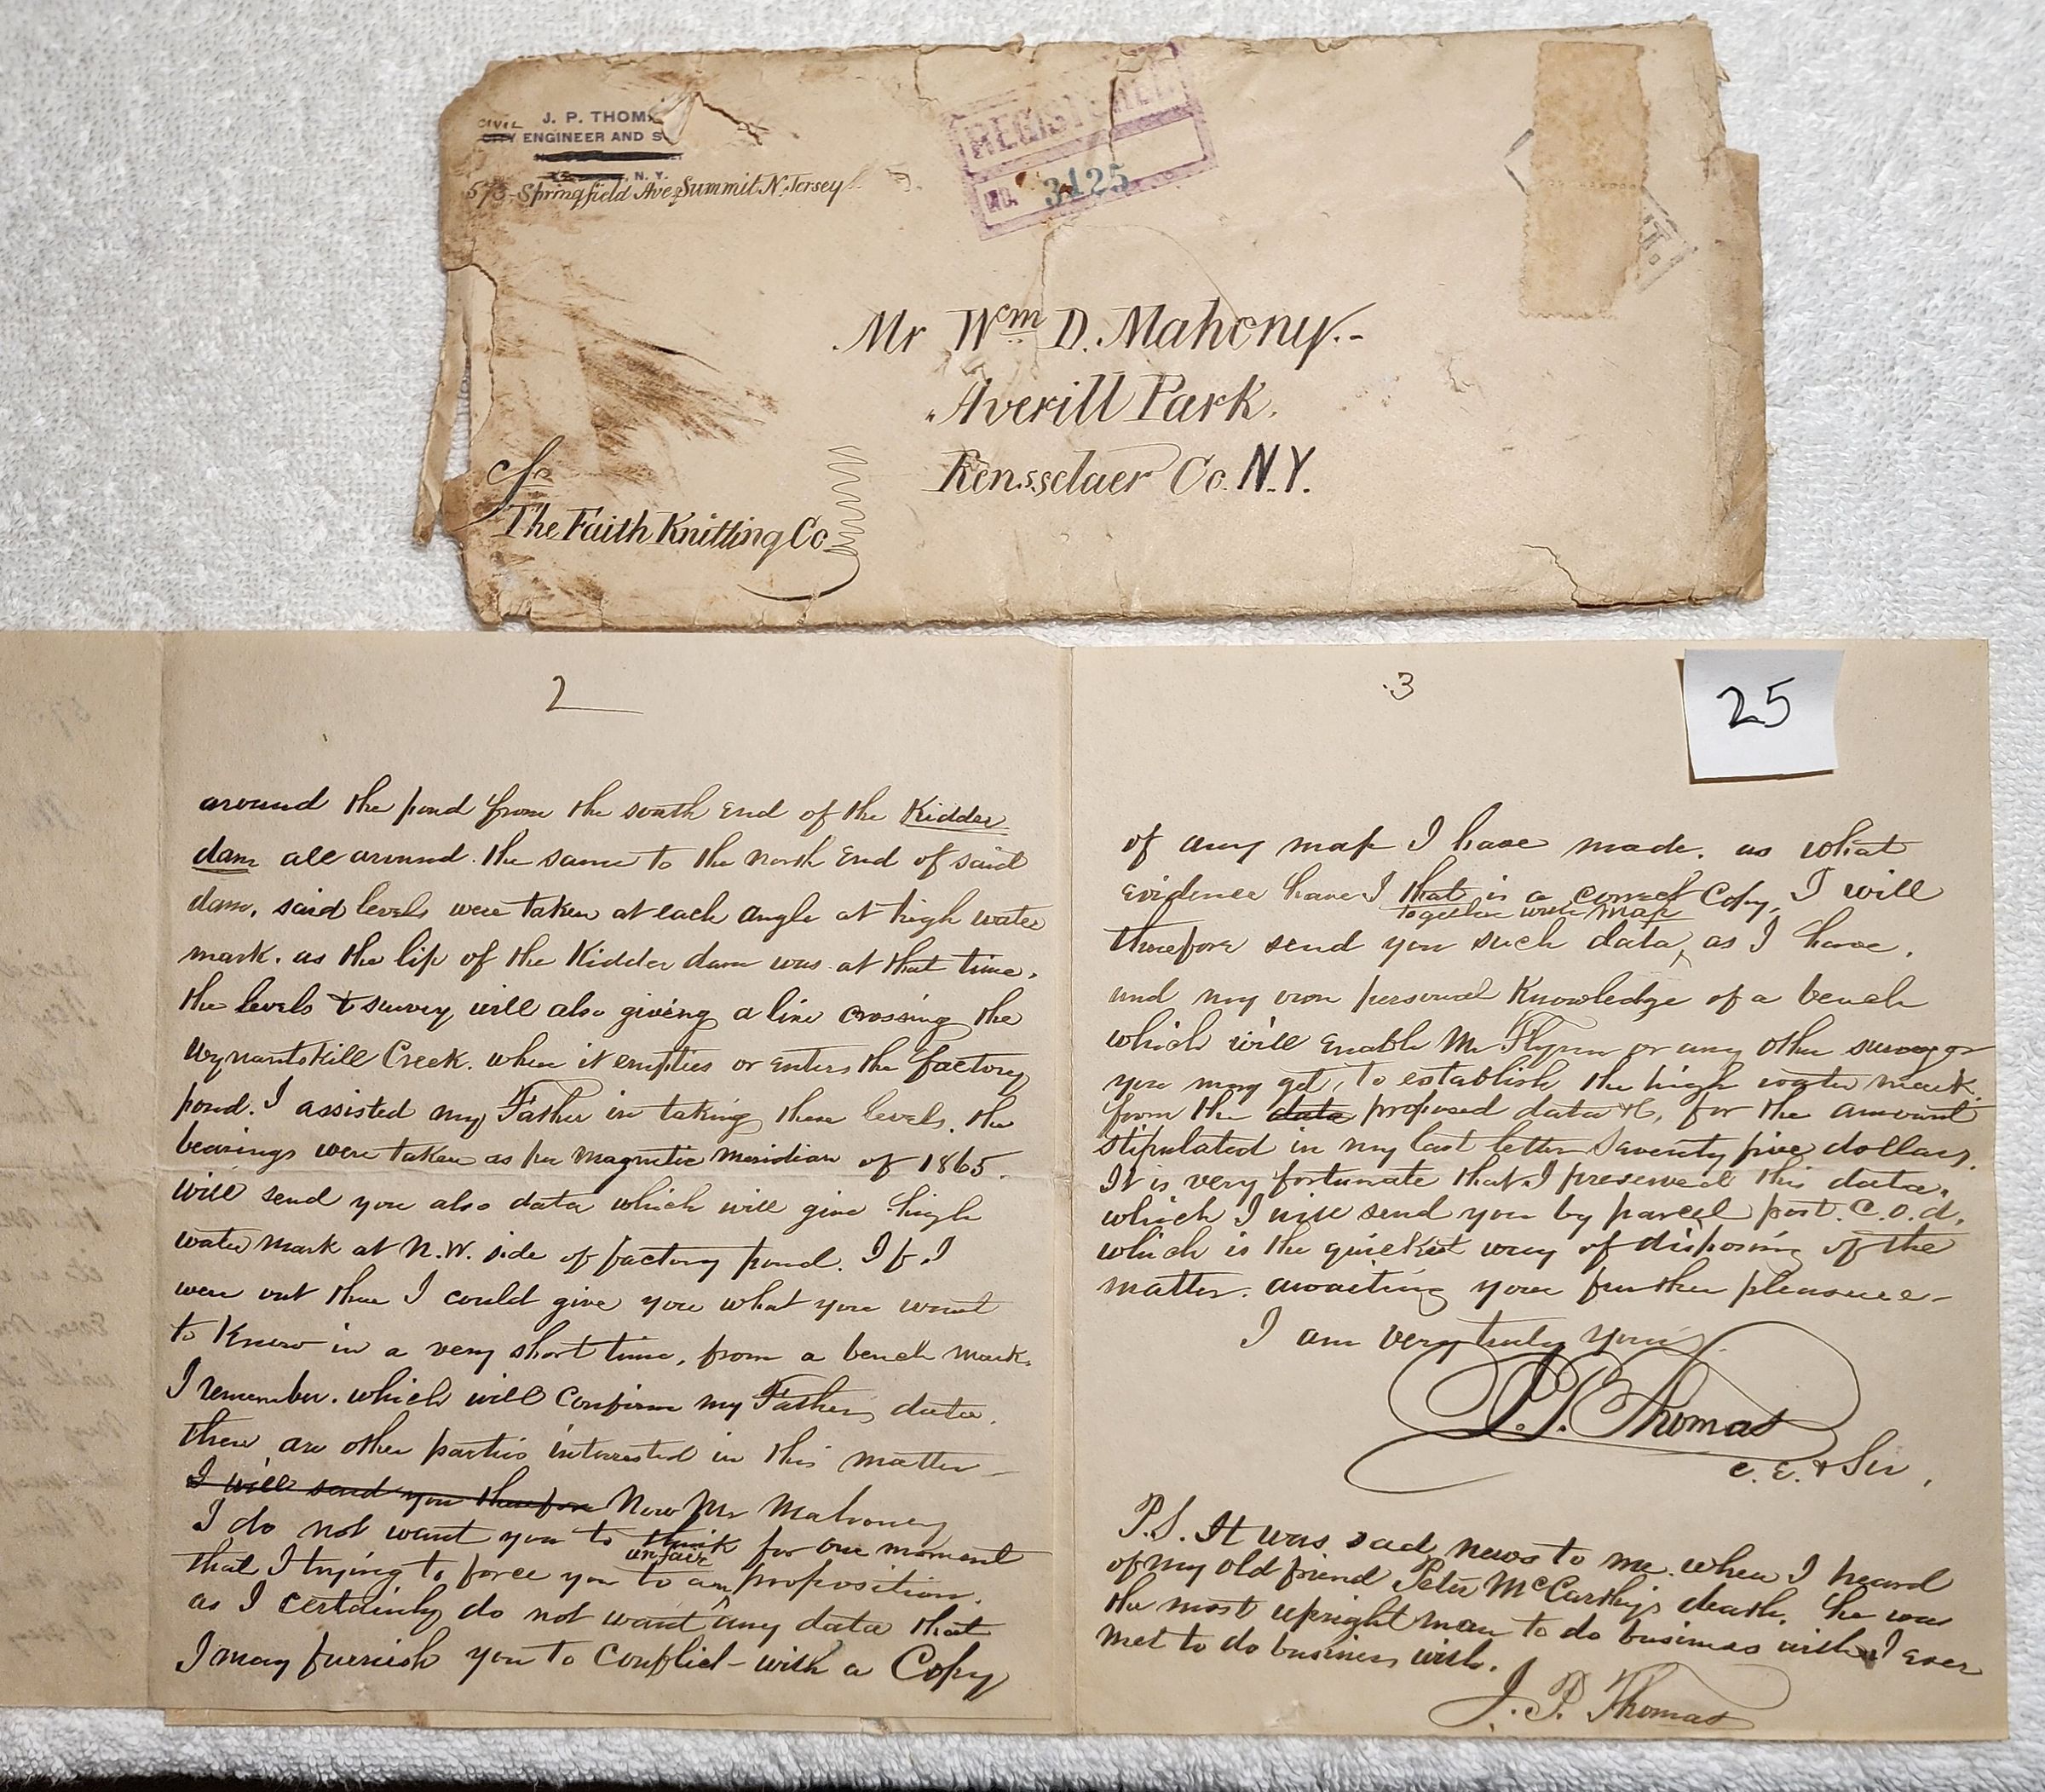 J. P. THOM
CIVIL
CITY ENGINEER AND S
, N. Y.
573 Springfield Ave, Summit N. Jersey
REGISTERED
NO. 3425
T.
Mr Wm D. Mahony.-
Averill Park,
Rensselaer Co. N.Y.
c/o
The Faith Knitting Co
2
around the pond from the south End of the Kidder
dam all around the same to the north End of said
dam, said levels were taken at each angle at high water
mark. as the lip of the Kidder dam was at that time.
the levels & survey will also giving a line crossing the
Wynantskill Creek. where it empties or enters the factory
pond. I assisted my Father in taking these levels. the
bearings were taken as per magnetic meridian of 1865.
will send you also data which will give high
water mark at N.W. side of factory pond. If I
were out there I could give you what you want
to Know in a very short time, from a bench mark.
I remember. which will confirm my Fathers data.
there are other parties interested in this matter—
I will send you therefore Now Mr Mahoney
I do not want you to think for one moment
unfair
that I trying to force you to an proposition.
as I certainly do not want any data that
I may furnish you to Conflict - with a Copy
3
25
of any map I have made. as what
evidence have I that is a correct Copy, I will
together with map
therefore send you such data, as I have.
and my own personal Knowledge of a bench
which will Enable Mr Flynn or any other surveyor
you may get, to establish the high water mark.
from the data proposed data &c, for the amount
stipulated in my last letter Seventy five dollars.
It is very fortunate that I preserved this data.
which I will send you by parcel post. C.O.d.
which is the quickest way of disposing of the
matter. awaiting your further pleasure-
I am very truly yours
J.P. Thomas
C. E. & Sur.
P.S. It was sad news to me. when I heard
of my old friend Peter McCarthy's death. he was
the most upright man to do business with I ever
met to do business with.
J. P. Thomas